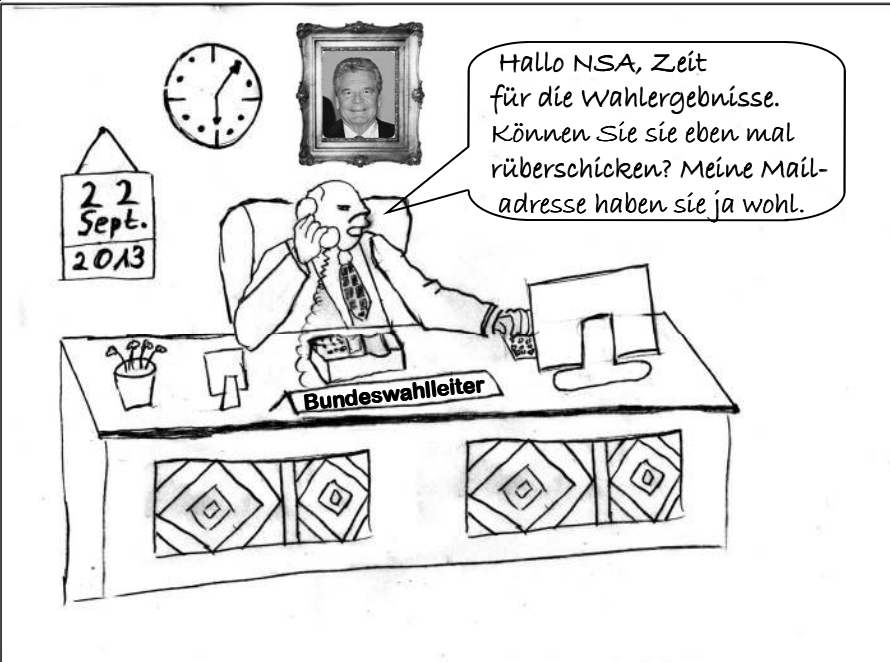 Hallo NSA, Zeit
für die Wahlergebnisse.
Können Sie sie eben mal
rüberschicken? Meine Mail-
adresse haben sie ja wohl.
22
Sept.
2013
Bundeswahlleiter